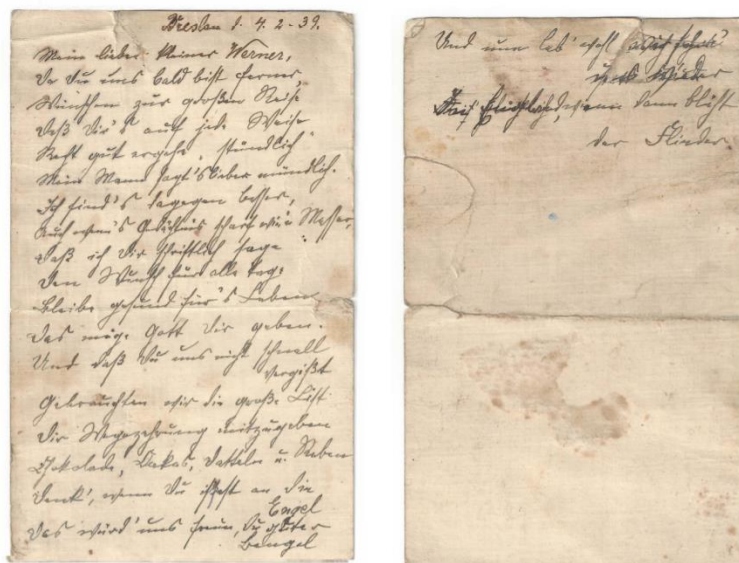 Breslau d. 4.2.-39.
Mein lieber kleiner Werner,
Da Du uns bald bist ferner,
Wünschen zur großen Reise
Daß Dir's auf jede Weise
Recht gut ergehe, stündlich
Mein Mann sagt's lieber mündlich.
Ich find's dagegen besser,
Auch wenn's Gedächtnis scharf wie'n Messer,
Daß ich Dir schriftlich sage
Den Wunsch für alle Tage
Bleibe gesund für's Leben
Das möge Gott Dir geben.
Und daß Du uns nicht schnell
vergißt
Gebrauchten wir die große List
Dir Wegzehrung mitzugeben
Schokolade, Kakao, Datteln u. Reben
Denk', wenn Du issest an die
Engel
Das würd' uns freun, Du guter
Bengel
Und nun leb' wohl
wieder
wenn dann blüht
der Flieder.